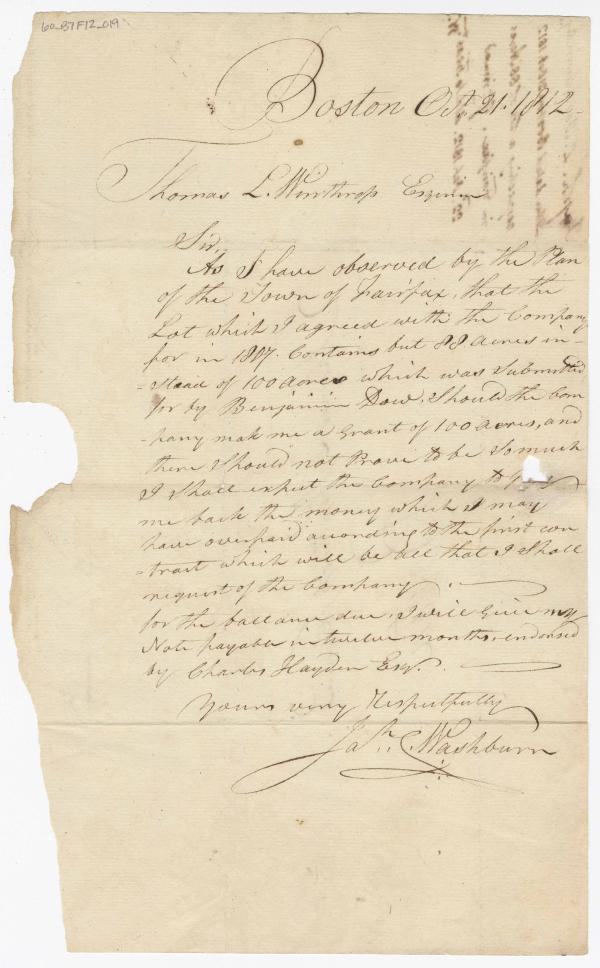 60_B7F12_019
Boston Oct. 21. 1812
Thomas L. Winthrop Esquire
Sir,
As I have observed by the Plan
of the Town of Fairfax, that the
Lot which I agreed with the Company
for in 1807. Contains but 88 acres in-
-stead of 100 acres which was Submitted
for by Benjamin Dow. Should the Com-
-pany mak me a Grant of 100 acres, and
there Should not Prove to be so much
I Shall expect the Company to
me back the money which I may
have overpaid according to the first con-
-tract which will be all that I Shall
request of the Company.
for the ballance due, I will Give my
Note payable in twelve months, endorsed
by Charles Hayden Esq.
Yours very Respectfully
Washburn